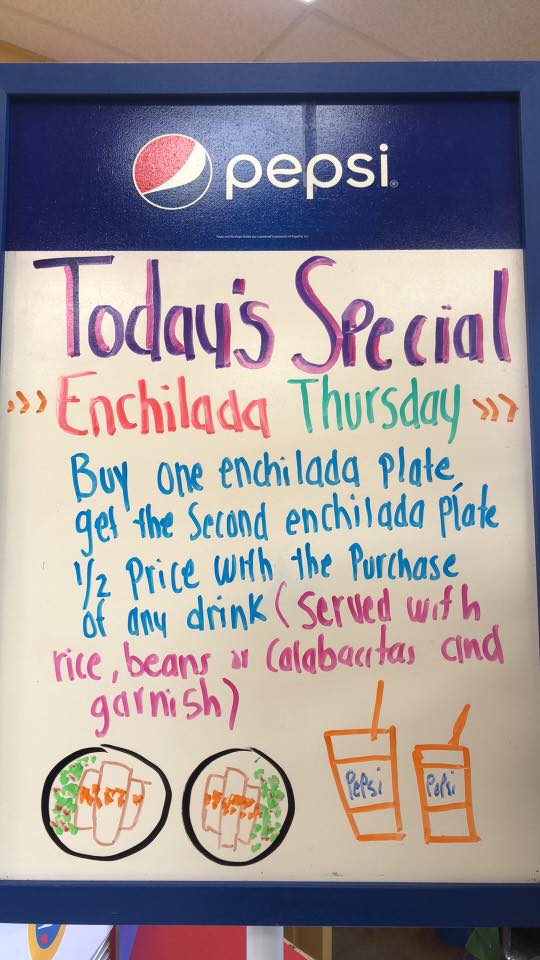 pepsi®
Today's Special
>>> Enchilada Thursday >>>
Buy one enchilada plate,
get the Second enchilada plate
1/2 Price with the Purchase
of any drink (served with
rice, beans or Calabacitas and
garnish)
Pepsi Pepsi